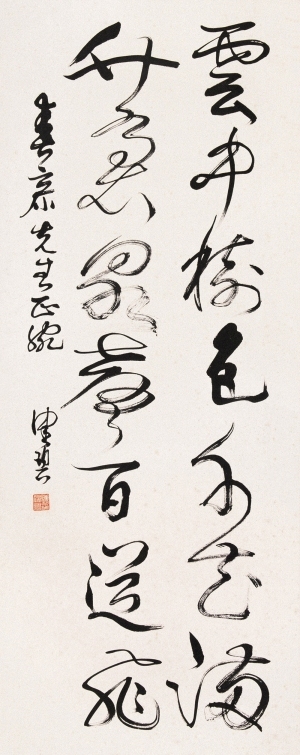 雲中樹色千花滿
竹裏泉聲百道飛
先生正腕